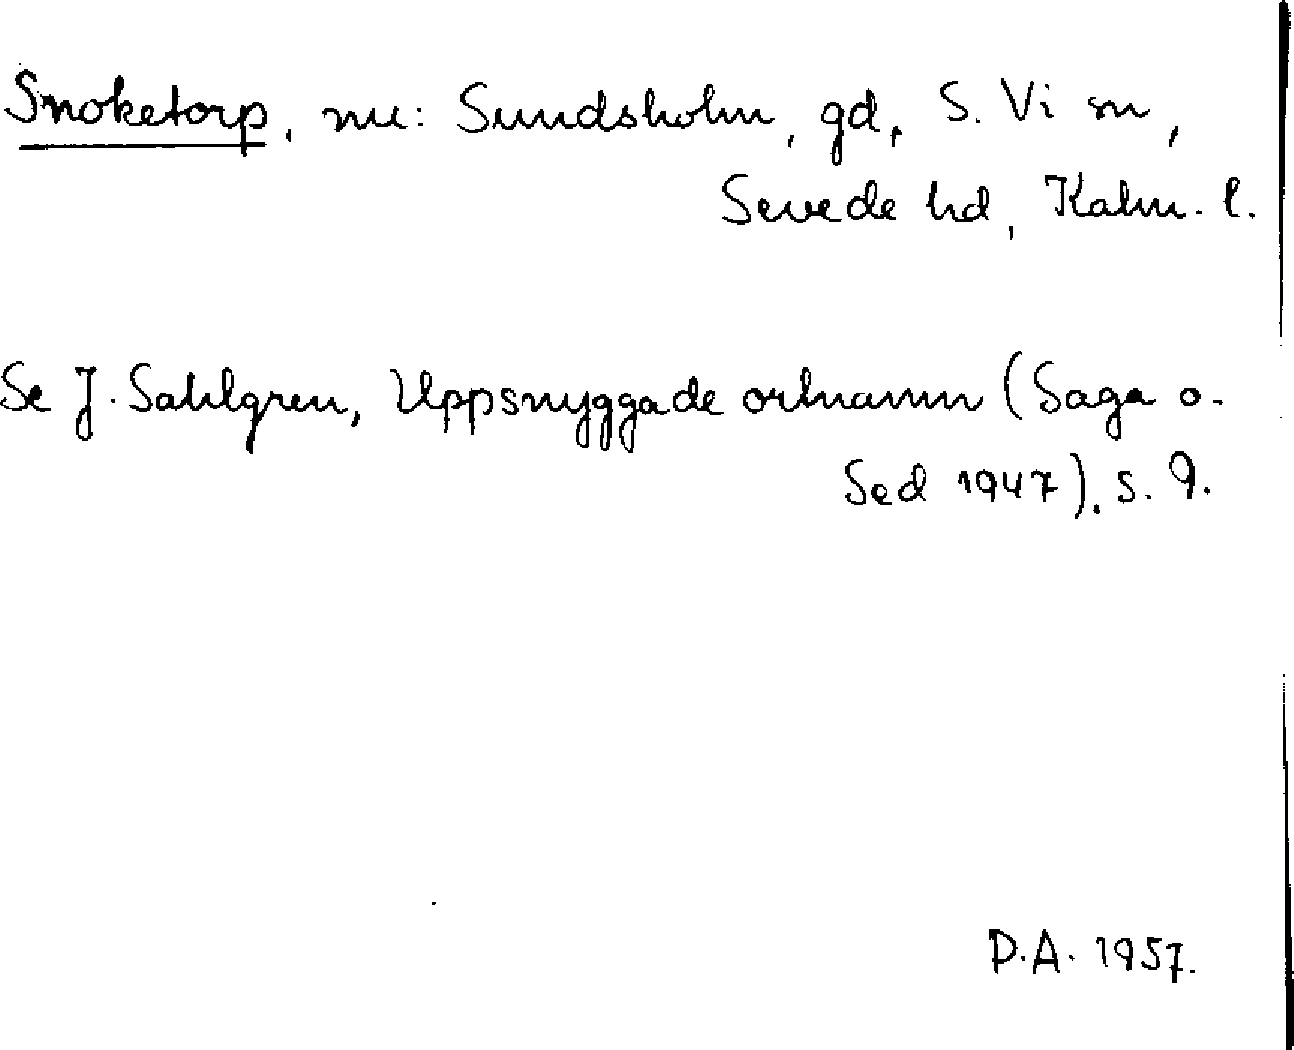 Snoketorp, nu: Sundsholm, gd, S. Vi sn,
Sevede hd, Kalm. l.
Se J. Sahlgren, Uppsnyggade ortnamn (Saga o.
Sed 1947), s. 9.
D.A. 1957.